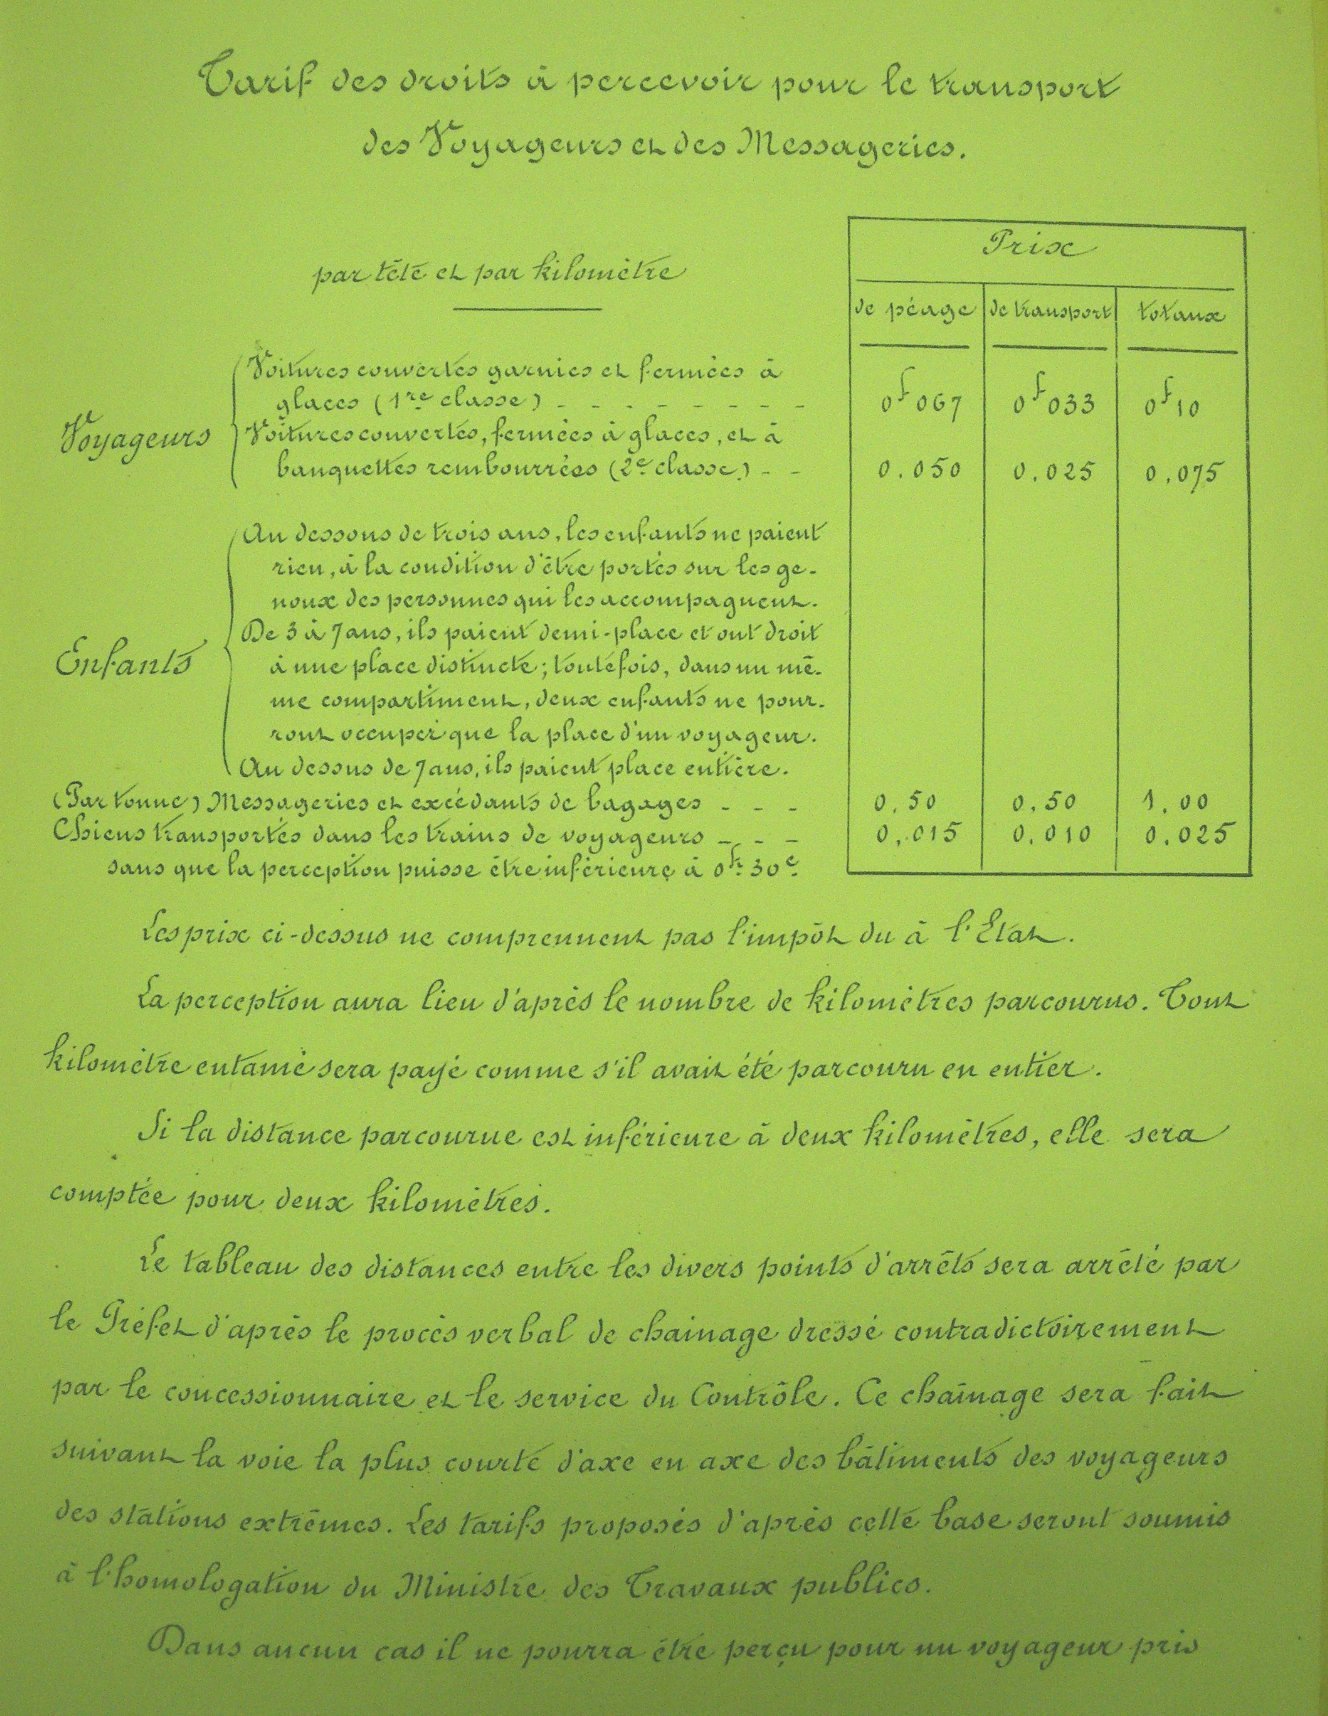 Tarif des droits à percevoir pour le transport
des Voyageurs et des Messageries.
par tête et par kilomètre
Prix
de péage de transport totaux
Voyageurs
Voitures couvertes garnies et fermées à
glaces (1re classe) - - - - - - - - 0f067 0f033 0f10
Voitures couvertes, fermées à glaces, et à
banquettes rembourrées (2e classe) - - 0.050 0.025 0.075
Enfants
Au dessous de trois ans, les enfants ne paient
rien, à la condition d'être portés sur les ge-
noux des personnes qui les accompagnent.
De 3 à 7 ans, ils paient demi-place et ont droit
à une place distincte; toutefois, dans un mê-
me compartiment, deux enfants ne pour-
ront occuper que la place d'un voyageur.
Au dessus de 7 ans, ils paient place entière.
(Par tonne) Messageries et excédants de bagages - - - 0.50 0.50 1.00
Chiens transportés dans les trains de voyageurs - - - 0.015 0.010 0.025
sans que la perception puisse être inférieure à 0fr 30c
Les prix ci-dessus ne comprennent pas l'impôt du à l'Etat.
La perception aura lieu d'après le nombre de kilomètres parcourus. Tout
kilomètre entamé sera payé comme s'il avait été parcouru en entier.
Si la distance parcourue est inférieure à deux kilomètres, elle sera
comptée pour deux kilomètres.
Le tableau des distances entre les divers points d'arrêts sera arrêté par
le Préfet d'après le procès verbal de chainage dressé contradictoirement
par le concessionnaire et le service du Contrôle. Ce chaînage sera fait
suivant la voie la plus courte d'axe en axe des bâtiments des voyageurs
des stations extrêmes. Les tarifs proposés d'après cette base seront soumis
à l'homologation du Ministre des Travaux publics.
Dans aucun cas il ne pourra être perçu pour un voyageur pris